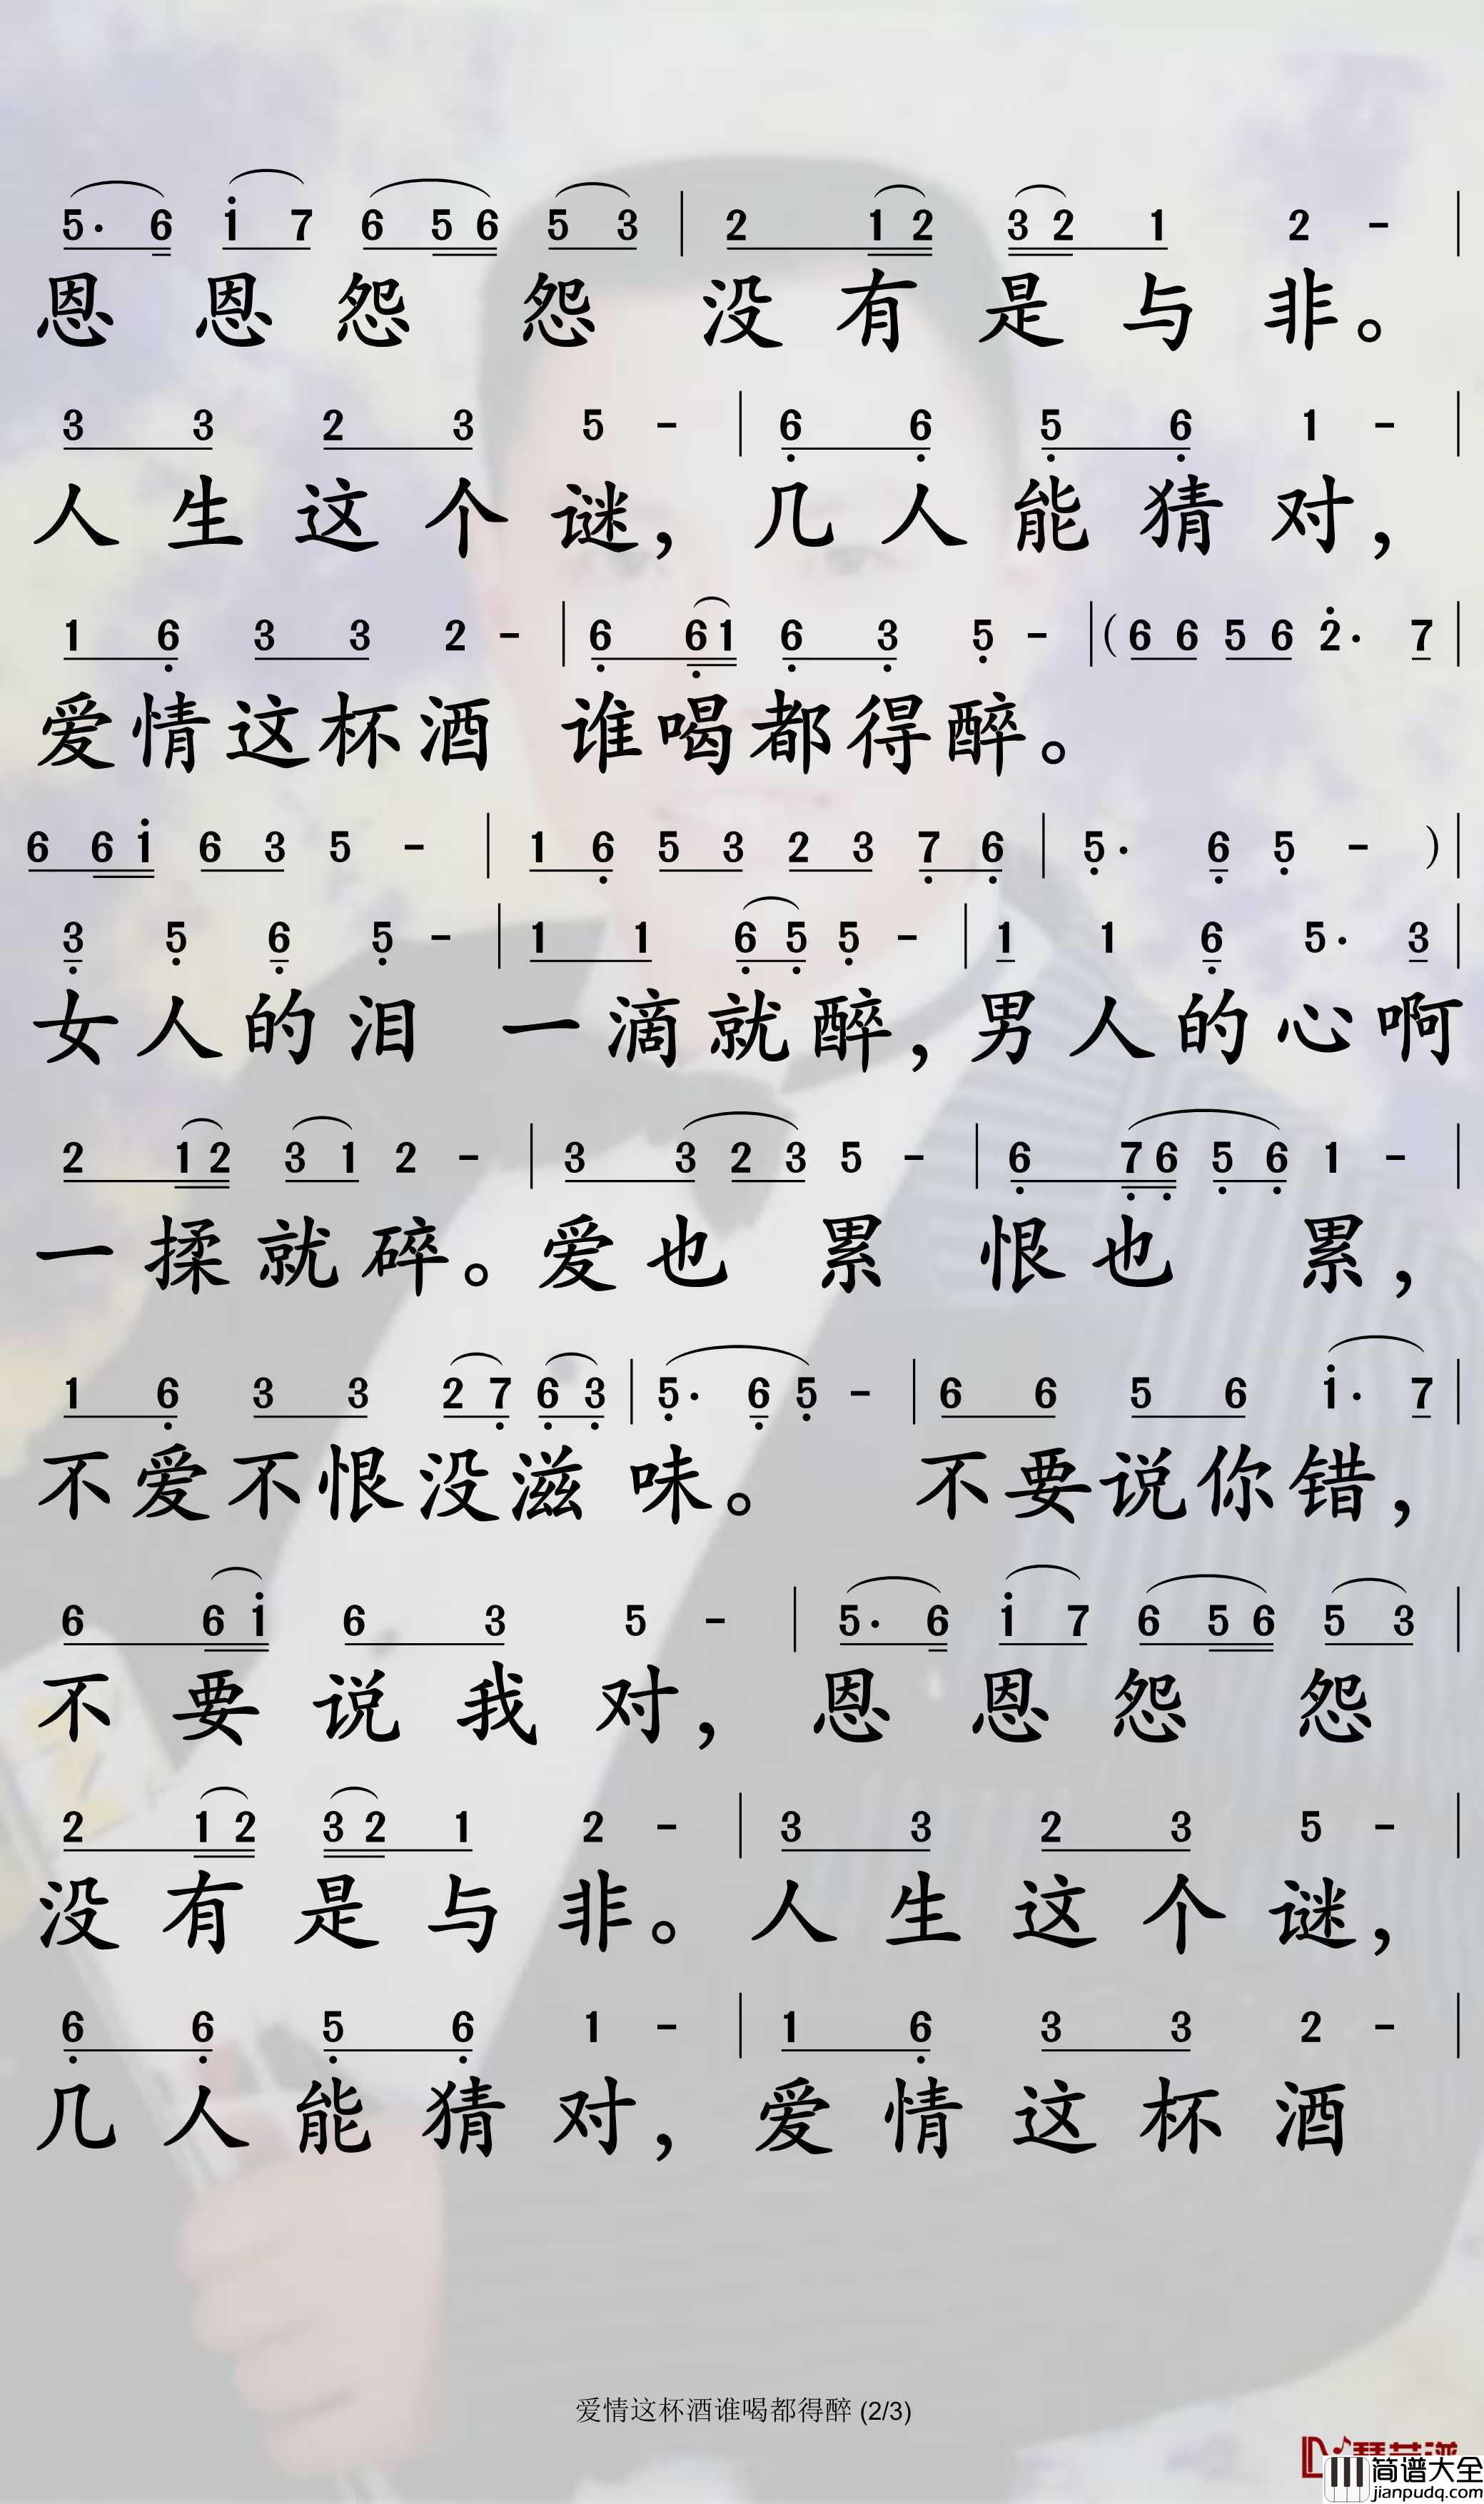 5· 6 i 7 6 5 6 5 3 | 2 1 2 3 2 1 2 - |
恩恩怨怨 没有是与非。
3 3 2 3 5 - | 6 6 5 6 1 - |
人生这个谜，几人能猜对，
1 6 3 3 2 - | 6 6 1 6 3 5 - | (6 6 5 6 2· 7 |
爱情这杯酒 谁喝都得醉。
6 6 i 6 3 5 - | 1 6 5 3 2 3 7 6 | 5· 6 5 - ) |
3 5 6 5 - | 1 1 6 5 5 - | 1 1 6 5· 3 |
女人的泪 一滴就醉，男人的心啊
2 1 2 3 1 2 - | 3 3 2 3 5 - | 6 7 6 5 6 1 - |
一揉就碎。爱也累 恨也累，
1 6 3 3 2 7 6 3 | 5· 6 5 - | 6 6 5 6 i· 7 |
不爱不恨没滋味。 不要说你错，
6 6 i 6 3 5 - | 5· 6 i 7 6 5 6 5 3 |
不要说我对，恩恩怨怨
2 1 2 3 2 1 2 - | 3 3 2 3 5 - |
没有是与非。人生这个谜，
6 6 5 6 1 - | 1 6 3 3 2 - |
几人能猜对，爱情这杯酒
爱情这杯酒谁喝都得醉 (2/3)
简谱大全
jianpudq.com